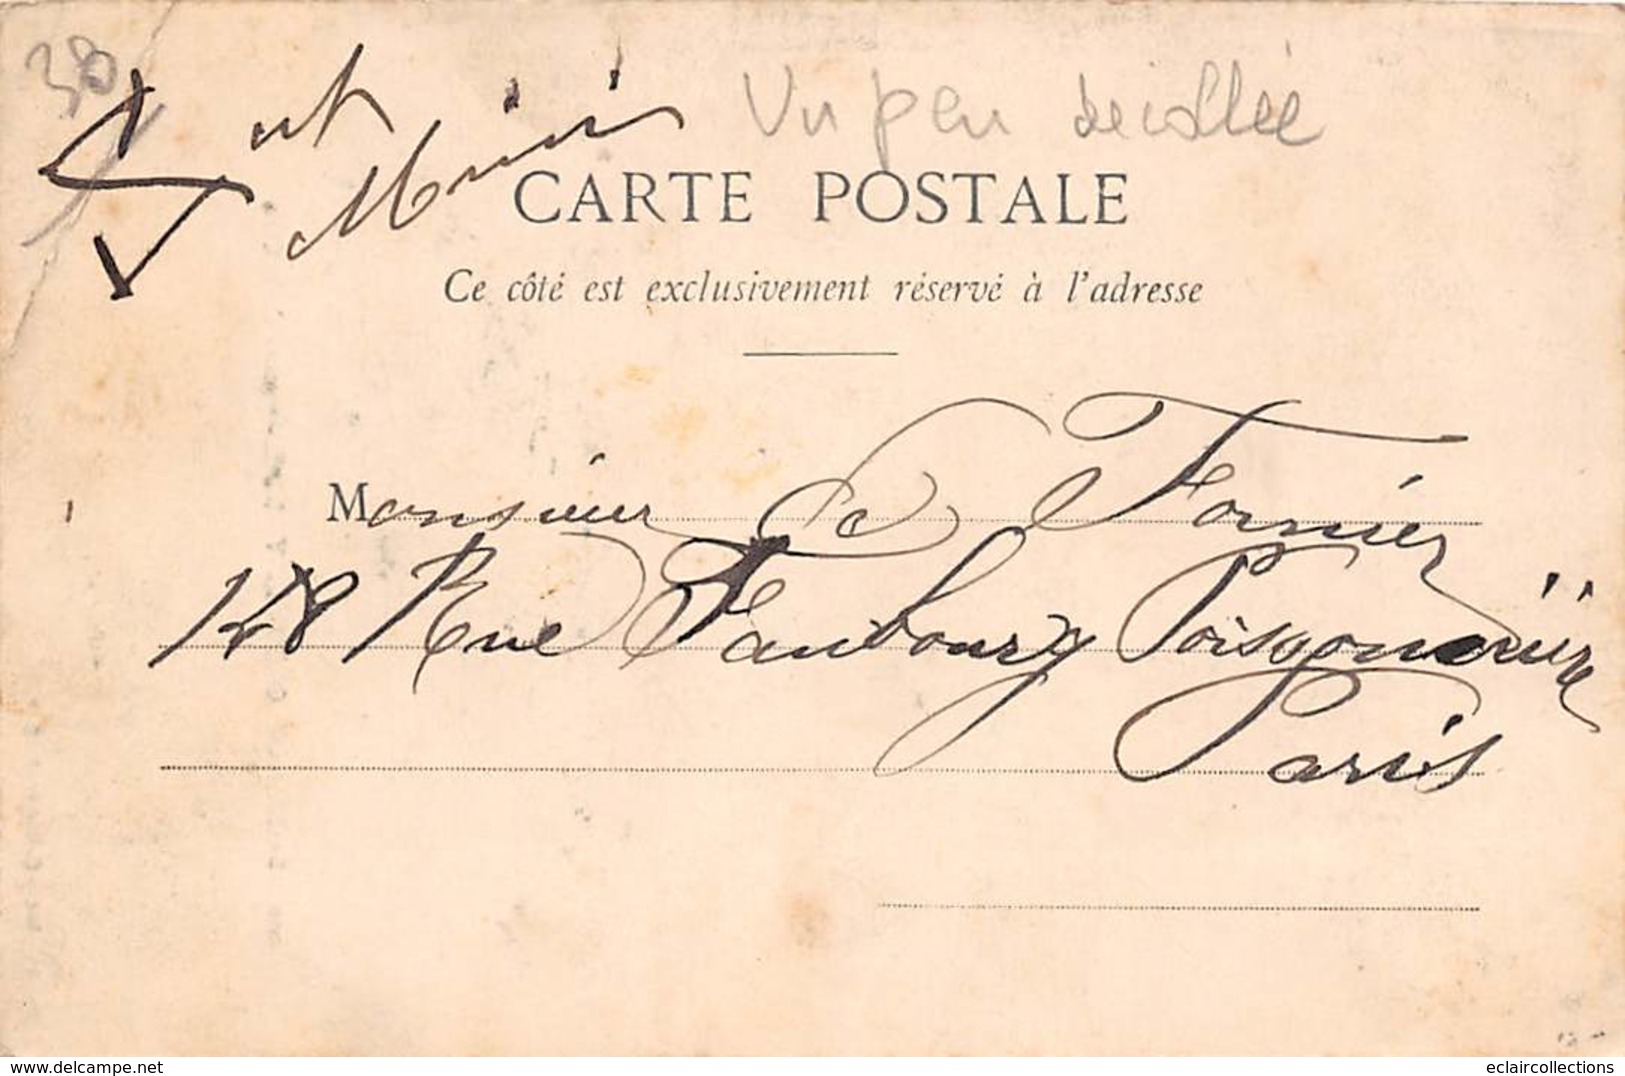 30
Vu peu décollée
CARTE POSTALE
Ce côté est exclusivement réservé à l'adresse
Monsieur C Fournier
148 Rue Faubourg Poissonnière
Paris
delcampe.net
eclaircollections